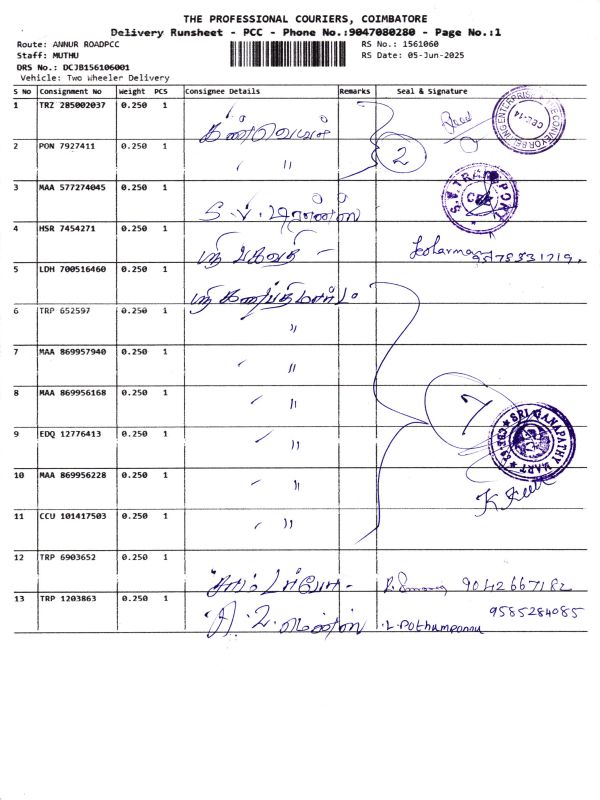 THE PROFESSIONAL COURIERS, COIMBATORE
Delivery Runsheet - PCC - Phone No.:9047080280 - Page No.:1
Route: ANNUR ROADPCC
RS No.: 1561060
Staff: MUTHU
RS Date: 05-Jun-2025
DRS No.: DCJB156106001
Vehicle: Two Wheeler Delivery
S No Consignment No Weight PCS Consignee Details Remarks Seal & Signature
1 TRZ 285002037 0.250 1
2 PON 7927411 0.250 1 " 2
3 MAA 577274045 0.250 1
S.V. TRANSPORT
4 HSR 7454271 0.250 1 ஸ்ரீ பகவதி -
5 LDH 700516460 0.250 1 ஸ்ரீ கணபதி மார்ட்
6 TRP 652597 0.250 1 "
7 MAA 869957940 0.250 1 " 7
8 MAA 869956168 0.250 1 "
SRI GANAPATHY MART
9 EDQ 12776413 0.250 1 "
10 MAA 869956228 0.250 1 "
11 CCU 101417503 0.250 1 "
12 TRP 6903652 0.250 1 9042667182
13 TRP 1203863 0.250 1 9585284085
L. Pothumponnu